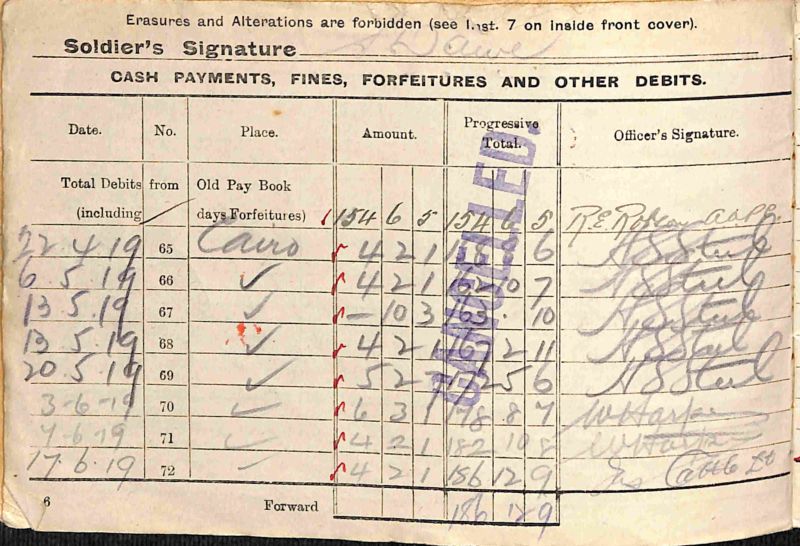 Erasures and Alterations are forbidden (see Inst. 7 on inside front cover).
Soldier's Signature
CASH PAYMENTS, FINES, FORFEITURES AND OTHER DEBITS.
Date. No. Place. Amount. Progressive Total. Officer's Signature.
Total Debits from Old Pay Book
(including days Forfeitures) 154 6 5 154 6 5 R.E.
22.4.19 65 Cairo 4 2 1 6
6.5.19 66 ✓ 4 2 1 162 10 7
13.5.19 67 ✓ - 10 3 10
13.5.19 68 ✓ 4 2 1 2 11
20.5.19 69 ✓ 5 2 7 172 5 6
3-6-19 70 ✓ 6 3 1 178 8 7
71 4 2 1 182 10 8
17.6.19 72 4 2 1 186 12 9
6 Forward 186 12 9
CANCELLED.